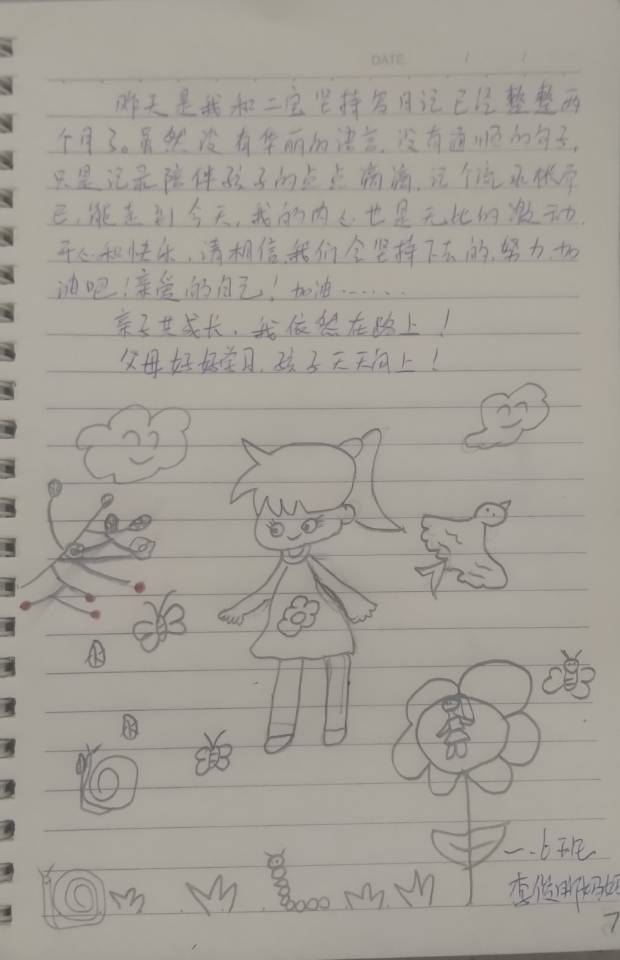 DATE / /
昨天是我和二宝坚持写日记已经整整两
个月了。虽然没有华丽的语言,没有通顺的句子,
只是记录陪伴孩子的点点滴滴,记个流水帐而
已,能走到今天,我的内心也是无比的激动,
开心和快乐,请相信,我们会坚持下去的,努力,加
油吧!亲爱的自己!加油......
亲子共成长,我依然在路上!
父母好好学习,孩子天天向上!
一.6班
查俊
7